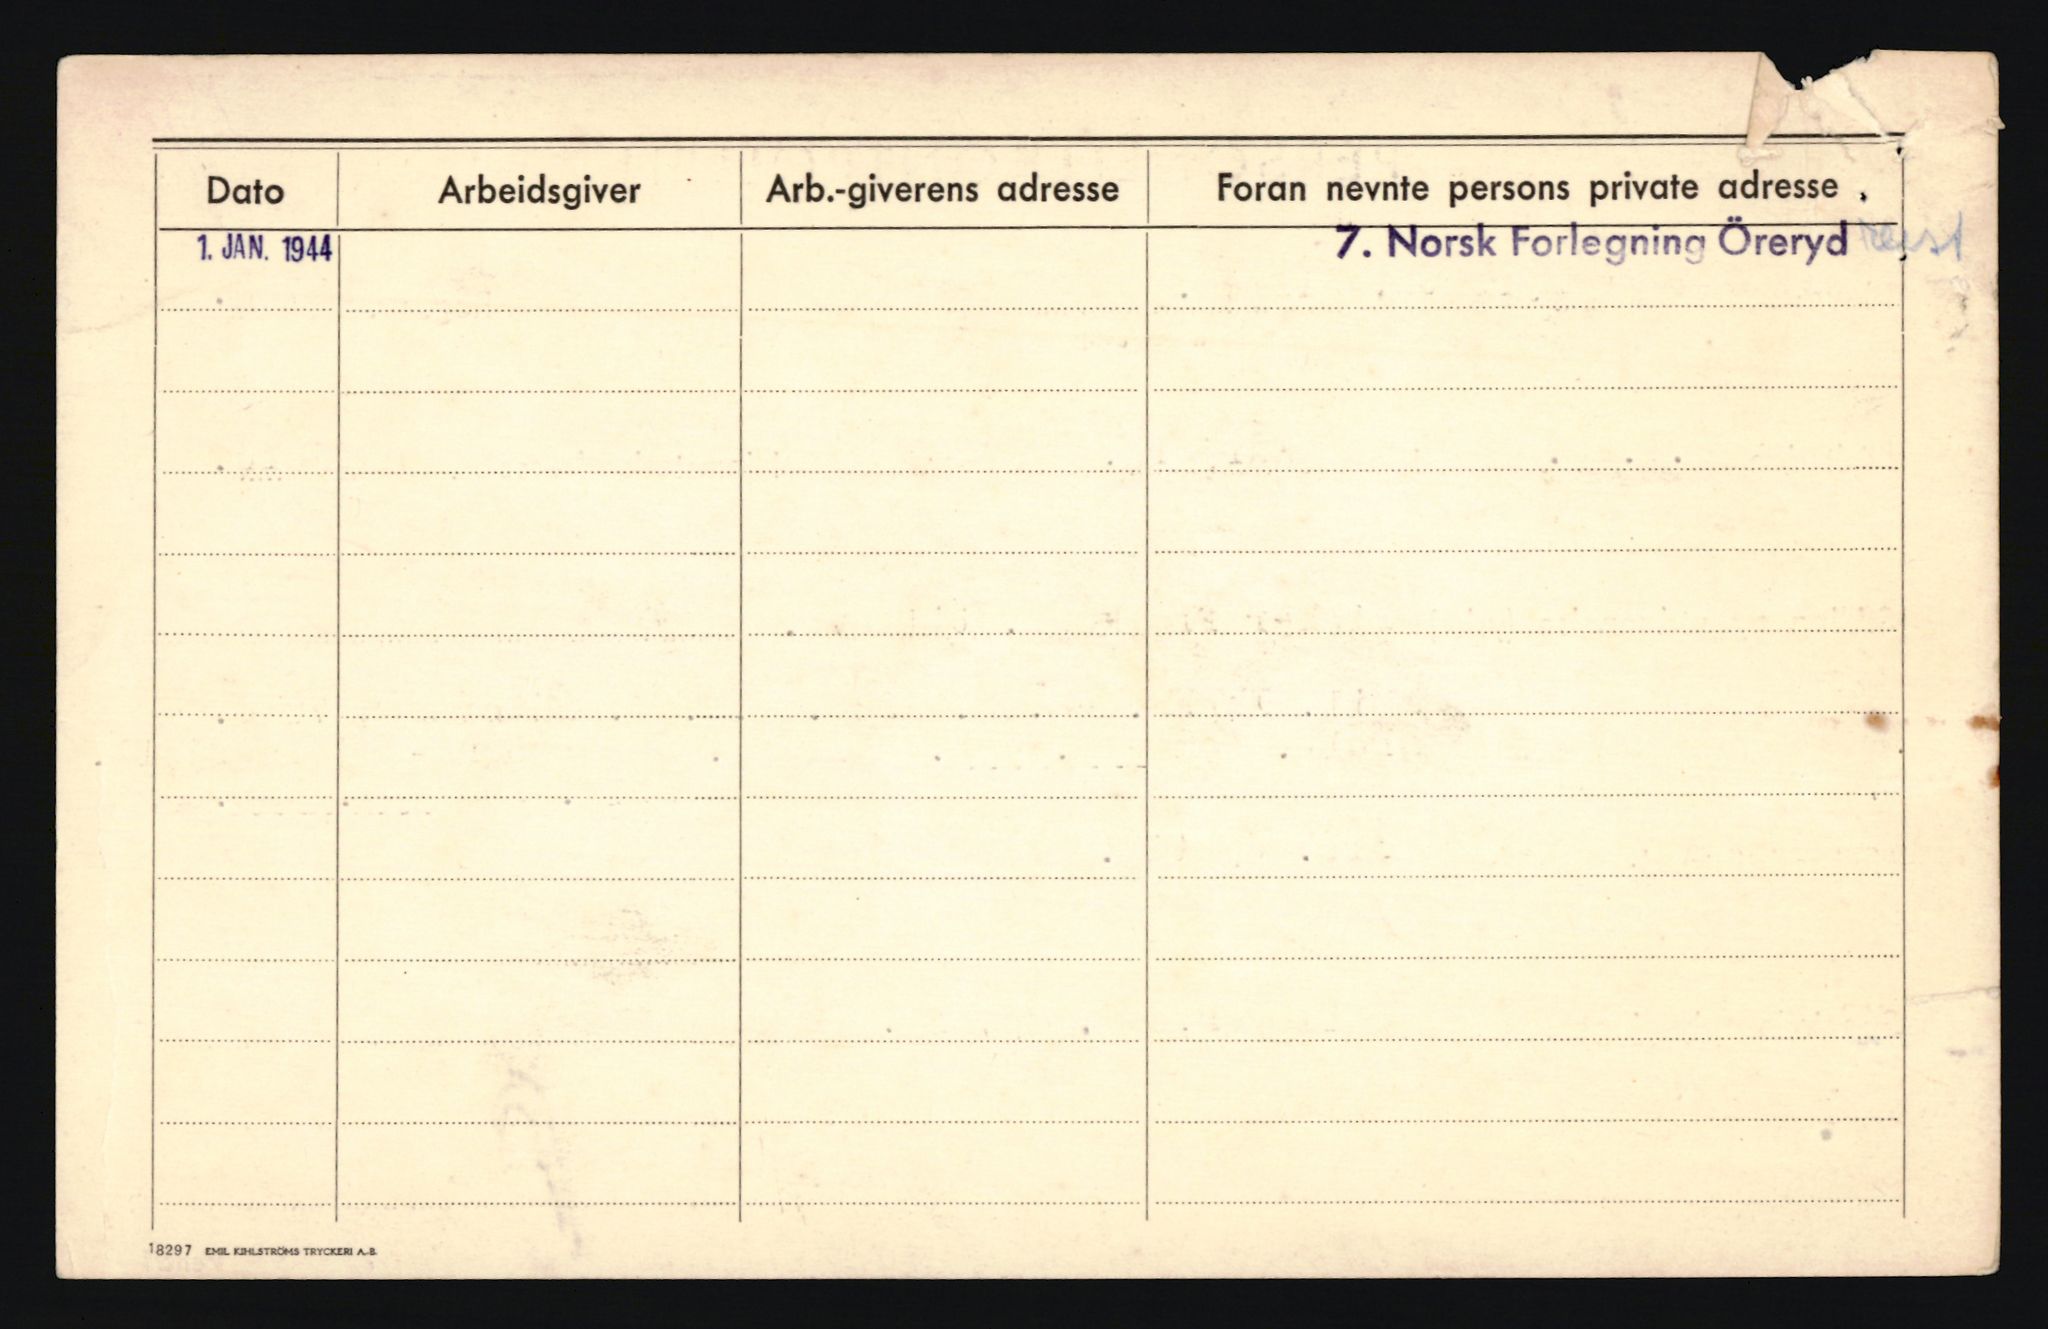 Dato Arbeidsgiver Arb.-giverens adresse Foran nevnte persons private adresse
1. JAN. 1944 7. Norsk Forlegning Öreryd
18297 EMIL KIHLSTRÖMS TRYCKERI A.-B.